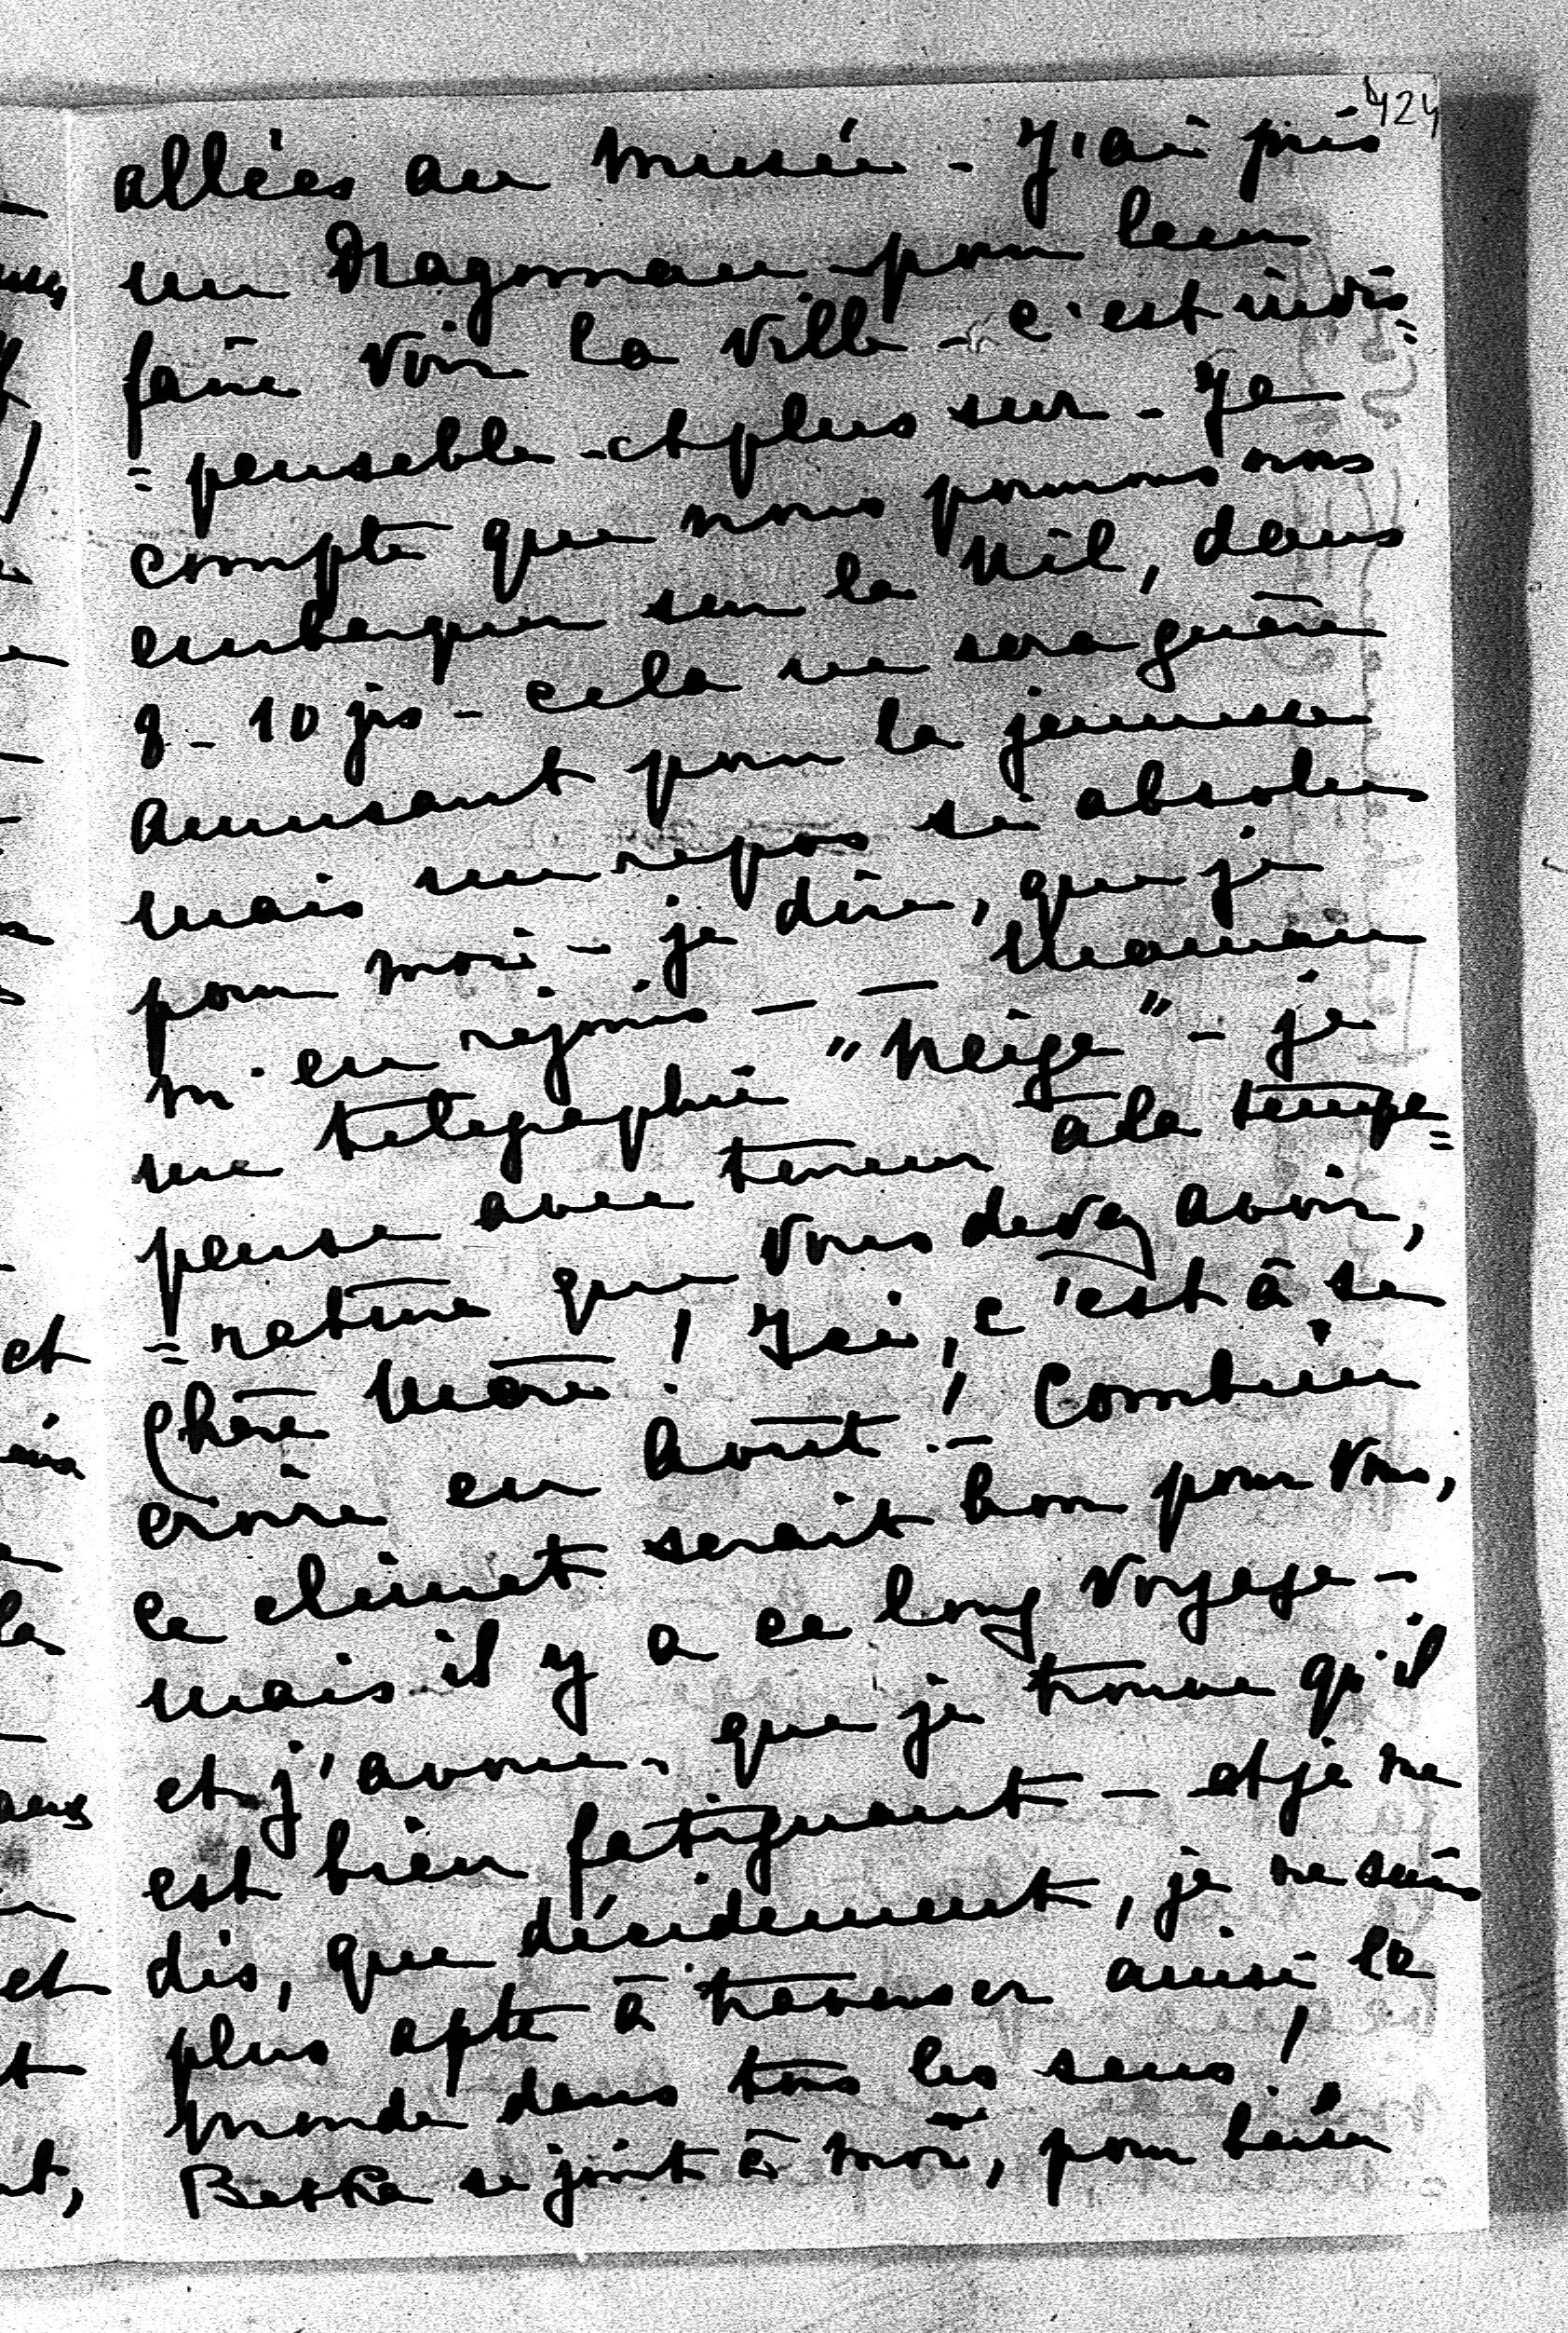 424
allées au musée - J'ai pris
un Dragoman - pour leur
faire voir la ville - c'est indis=
=pensable - et plus sur - Je
compte que nous pourrons nous
embarquer sur le Nil, dans
8 - 10 jrs - cela ne sera guère
amusant pour la jeunesse
mais un repos si absolu
pour moi - je dire, que je
m'en rejouis - — Maman
me telegraphie "Neige" - je
pense avec terreur à la tempe=
=rature que vous devez avoir,
Chère Marie! Ici, c'est à se
croire en Août! - Combien
ce climat serait bon pour vous,
mais il y a ce long voyage -
et j'avoue - que je trouve qu'il
est bien fatiguant - et je me
dis, que décidement, je ne suis
plus apte à traverser ainsi le
monde dans tous les sens!
Bertha se joint à moi, pour bien